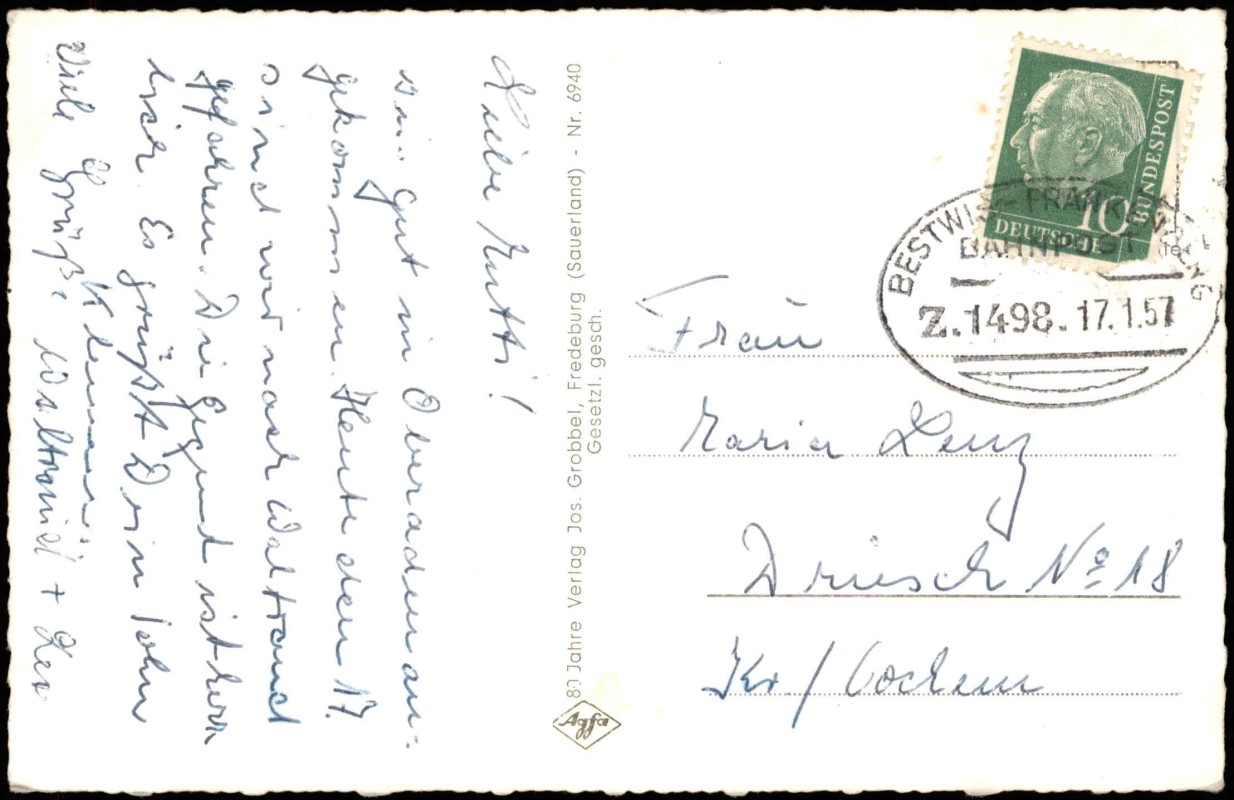 Liebe Mutti!
Bin gut in Oberaden an-
gekommen. Heute den 17.
sind wir nach Waltraud
gefahren. Die Gegend ist
hier. Es grüßt Dein Sohn
Klemens
Viele Grüße Waltraud + Leo
80 Jahre Verlag Jos. Grobbel, Fredeburg (Sauerland) - Nr. 6940
Gesetzl. gesch.
Agfa
DEUTSCHE
BUNDESPOST
10
BESTWIG - FRANKENBERG
BAHNPOST
Z.1498. 17.1.57
Frau
Maria Lenz
Driesch No 18
Kr/Cochem